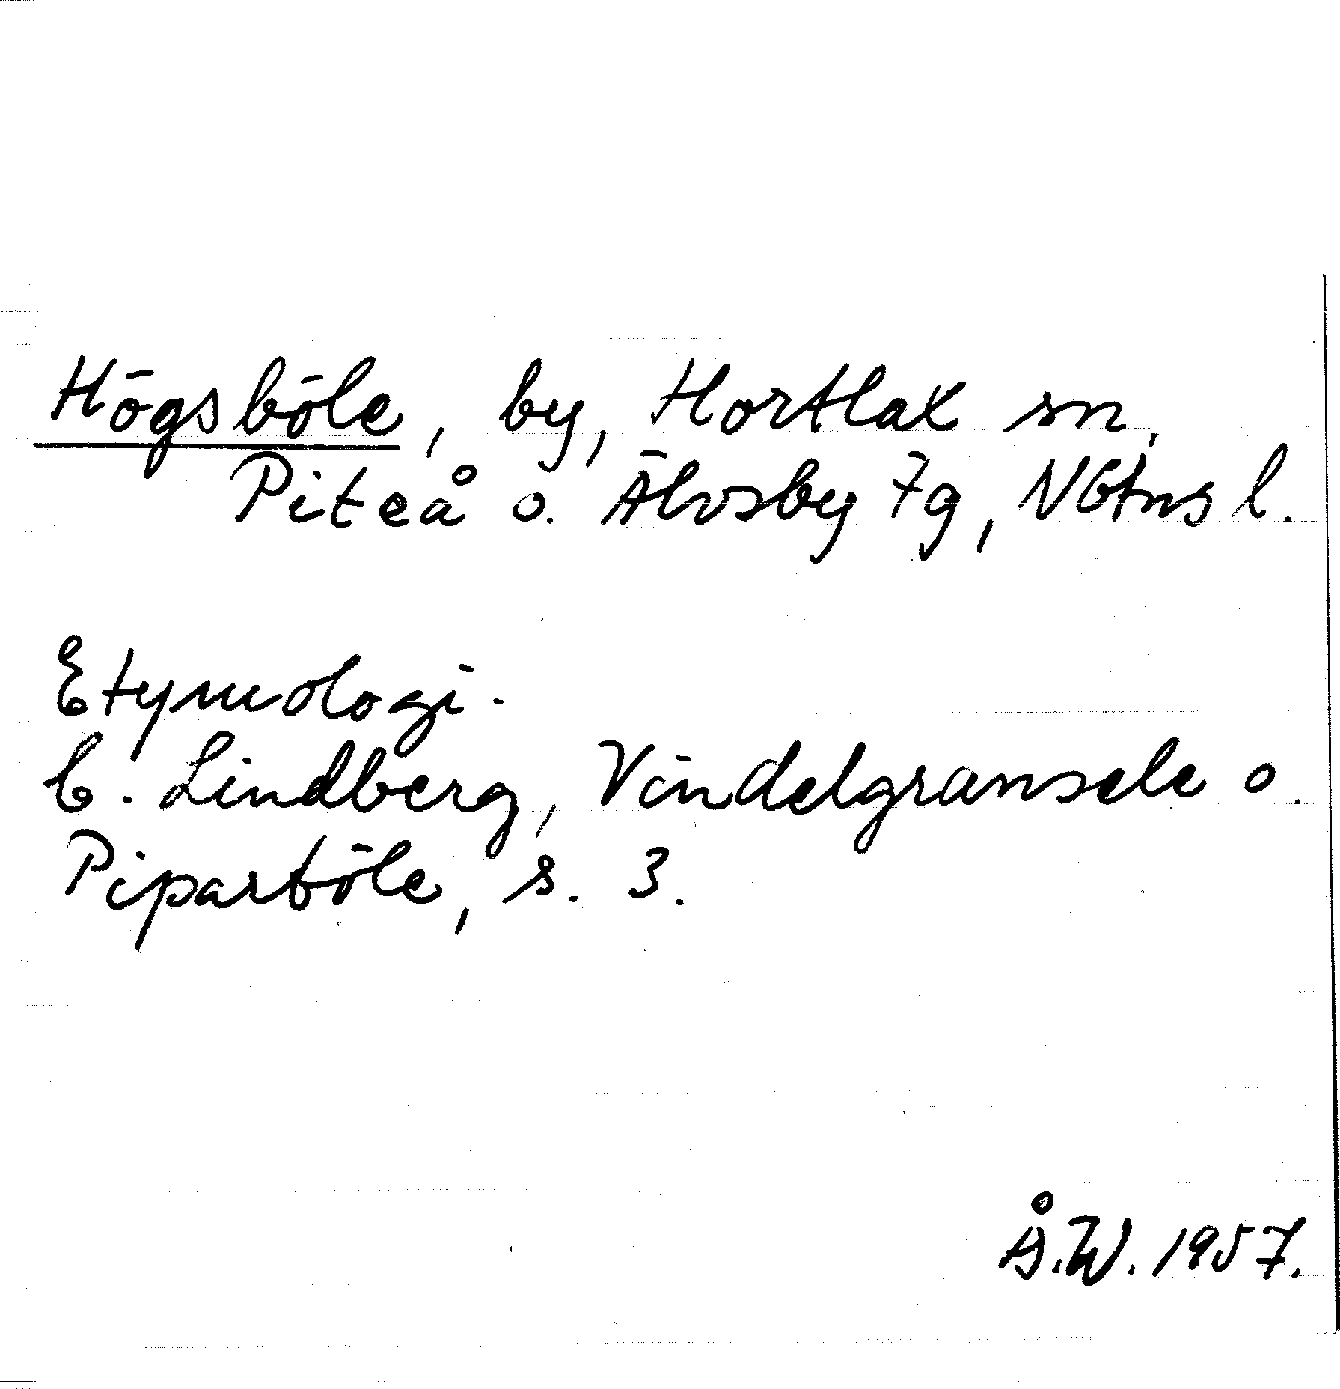 Högsböle, by, Hortlax sn,
Piteå o. Älvsby tg, Nbtns l.
Etymologi.
C. Lindberg, Vindelgransele o.
Piparböle, s. 3.
Å.W. 1957.